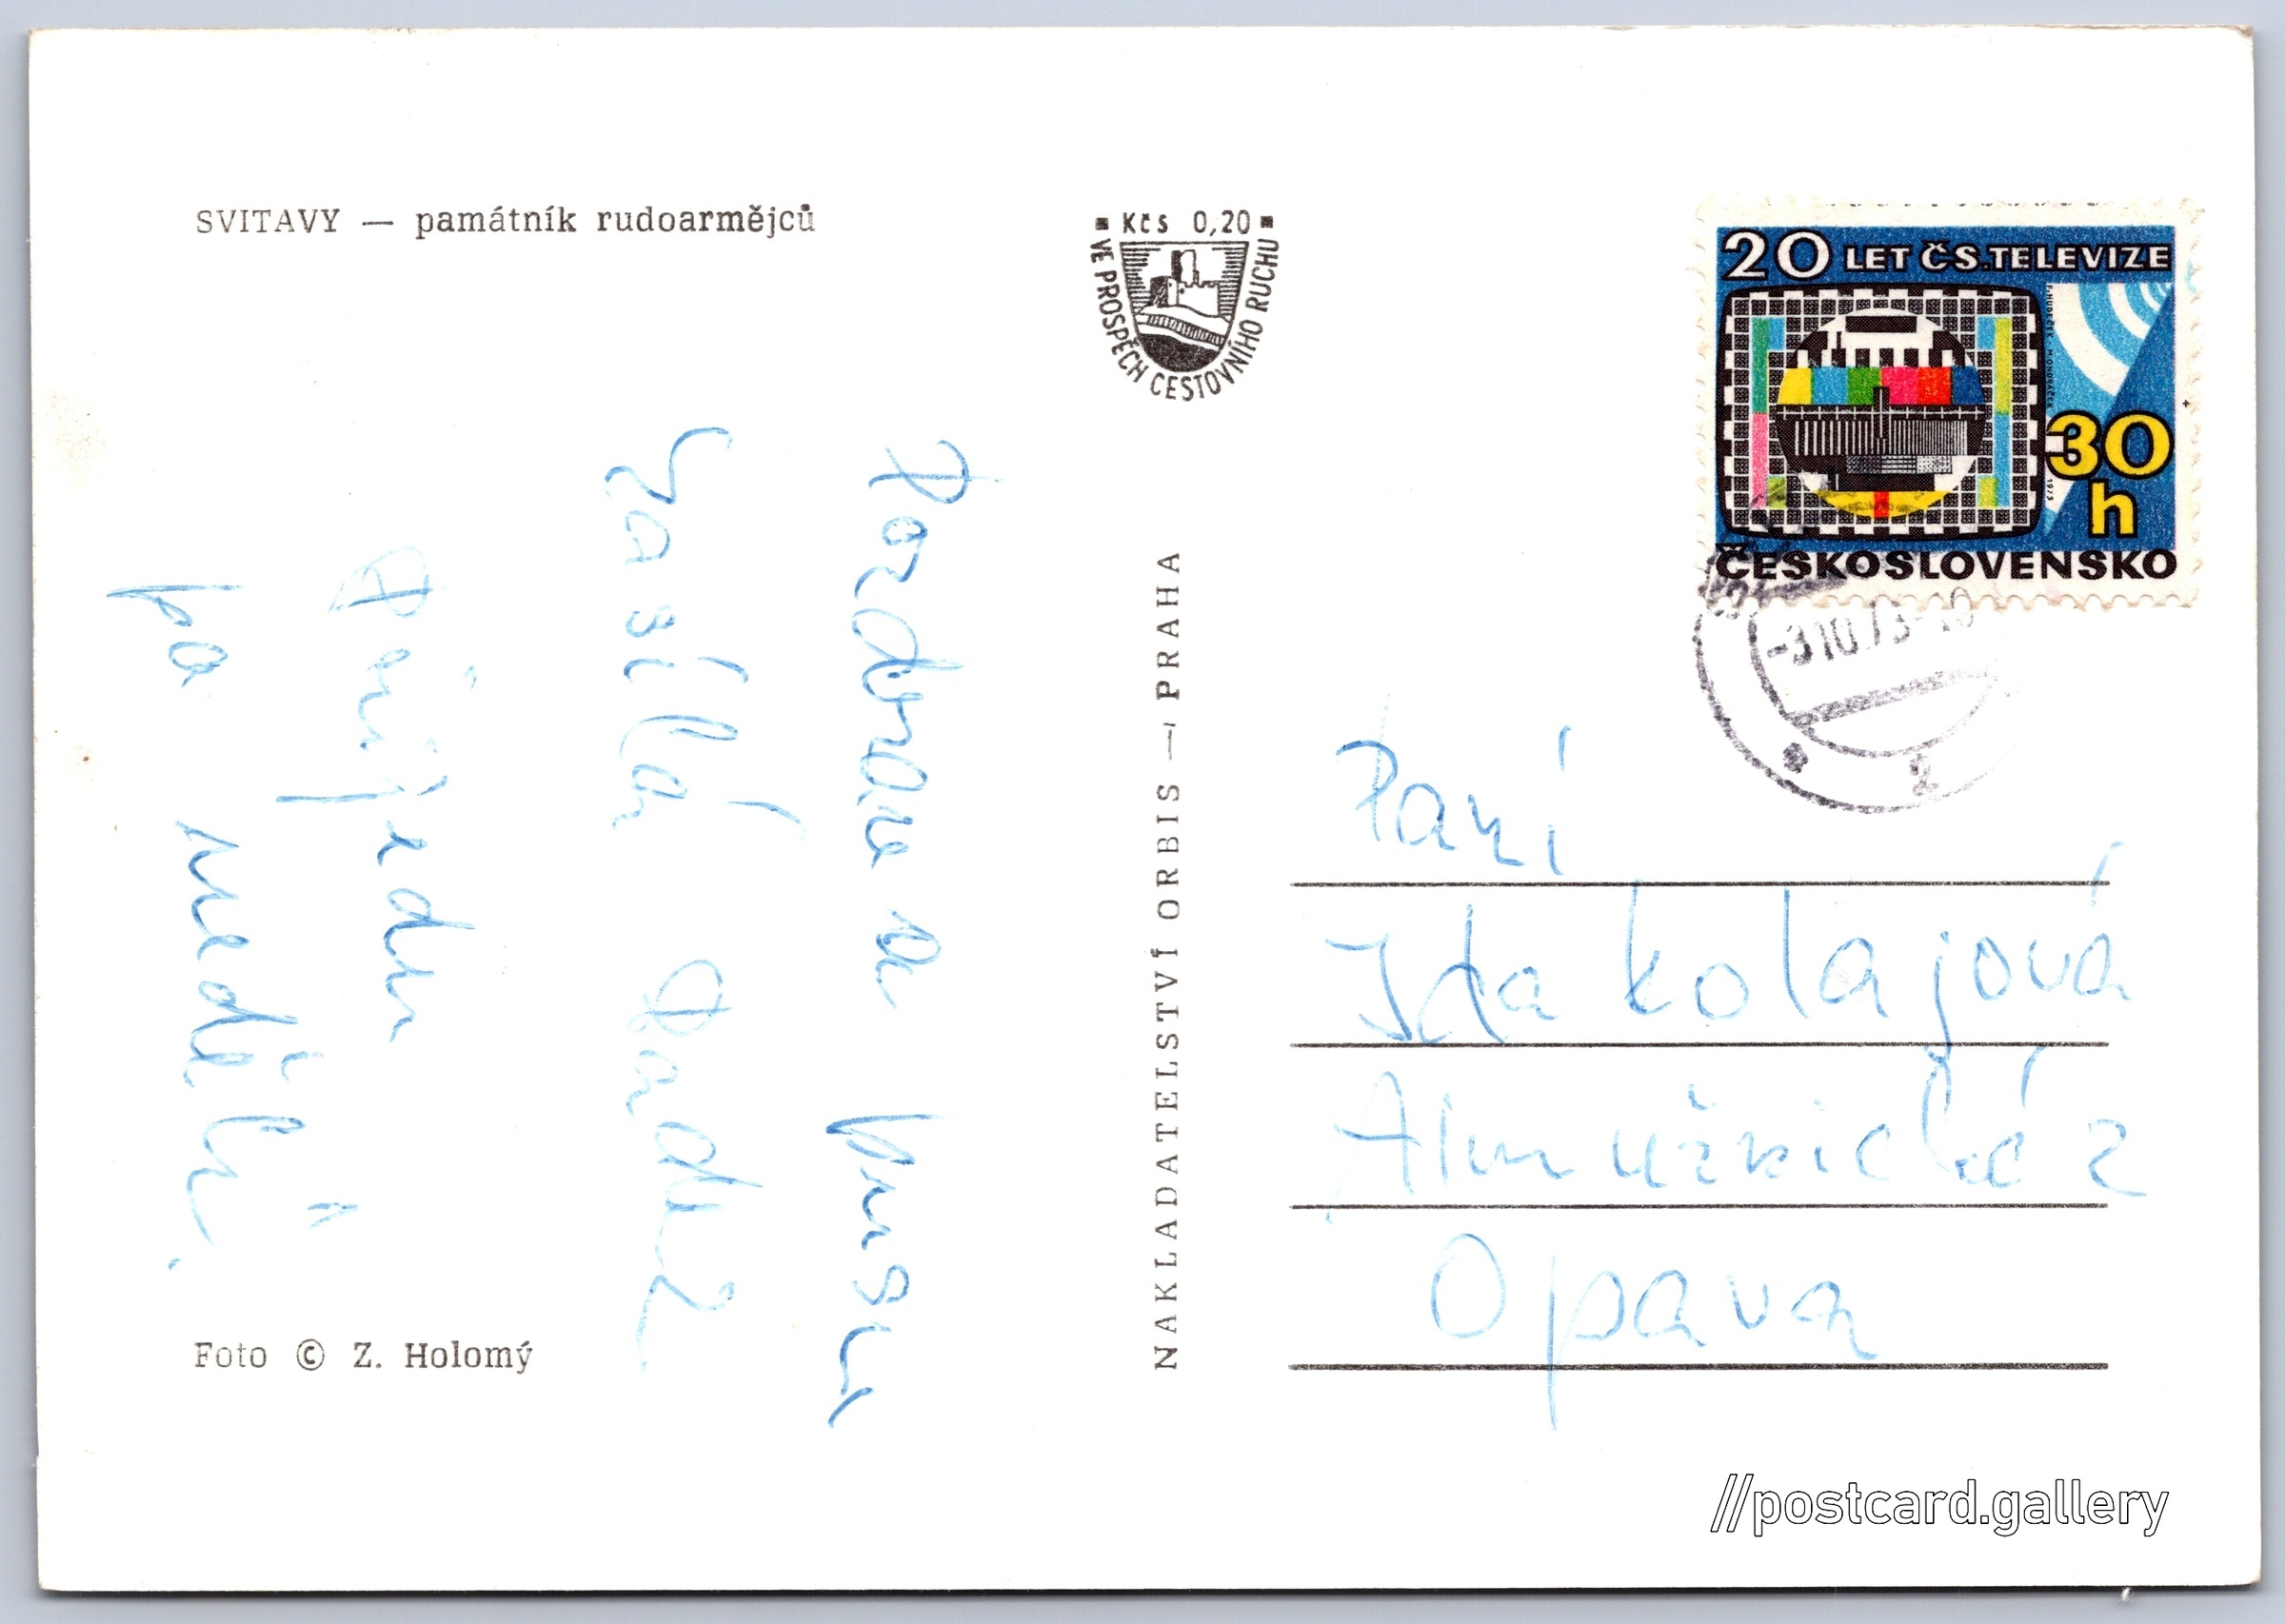 SVITAVY — památník rudoarmějců
Kčs 0,20
VE PROSPĚCH CESTOVNÍHO RUCHU
20 LET ČS. TELEVIZE
30
h
ČESKOSLOVENSKO
1973
-3.10.73-10
2
Pozdrav a pusu
zasílá
Přijedu
po neděli.
NAKLADATELSTVÍ ORBIS — PRAHA
Paní
Ida Kolajová
Opava
Foto © Z. Holomý
//postcard.gallery